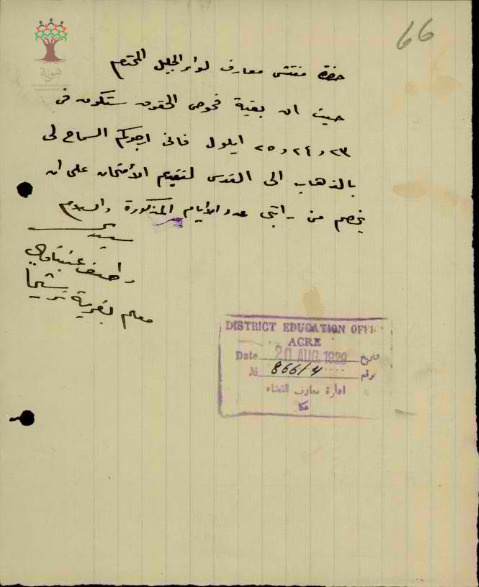 66
حضرة مفتش معارف لواء الجليل المحترم
حيث ان بقية فحوص الحقوق ستكون في
٢٣ و ٢٤ و ٢٥ ايلول فاني ارجوكم السماح لي
بالذهاب الى القدس لتقديم الأمتحان على ان
يخصم من راتبي عدد الأيام المذكورة والسلام
سيدي
واصف عنبتاوي
معلم بقرية ترشيحا
DISTRICT EDUCATION OFFI
ACRE
Date 20 AUG. 1929 تاريخ
№ 866/4 رقم
ادارة معارف القضاء
عكا